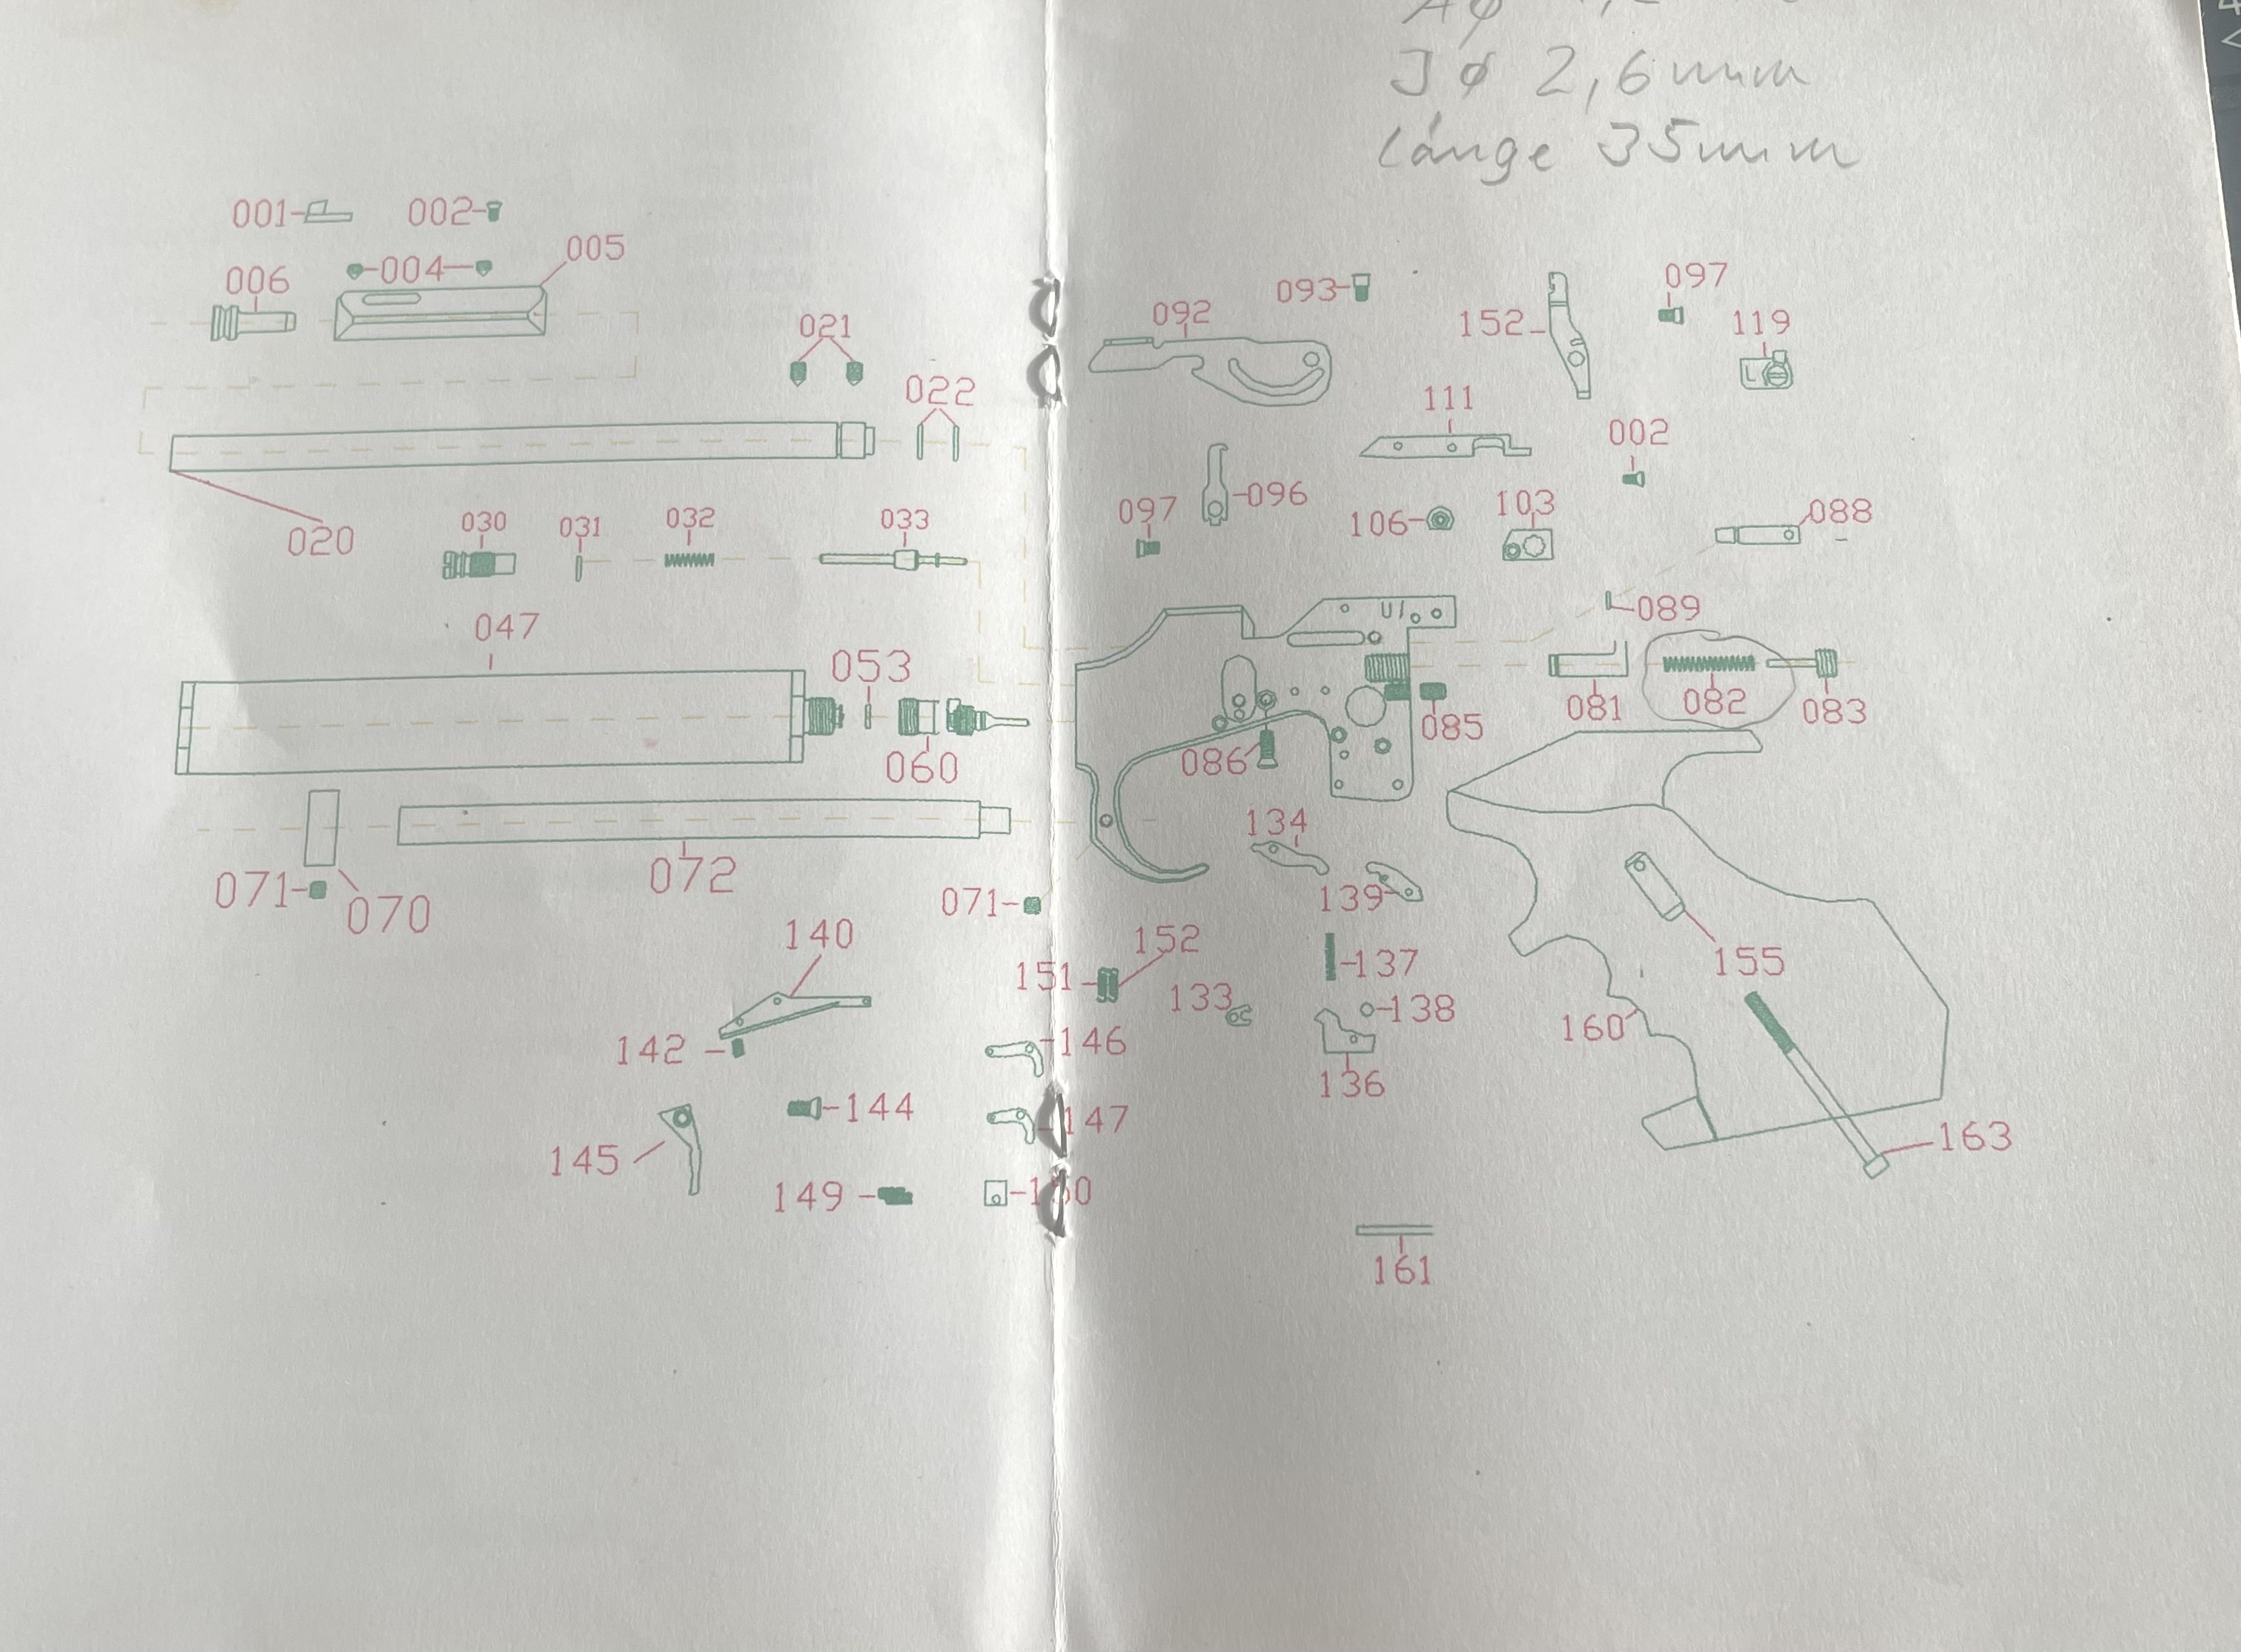 JØ 2,6mm
Länge 35mm
001 002
005
004
006
021
022
020
030 031 032 033
047
053
060
071 070 072
071
140
142
144
145
149
092 093
152
097
119
111
002
096
097
106 103
088
089
081 082 083
085
086
134
139
151 152
133 137
138
136
146
147
155
160
163
161